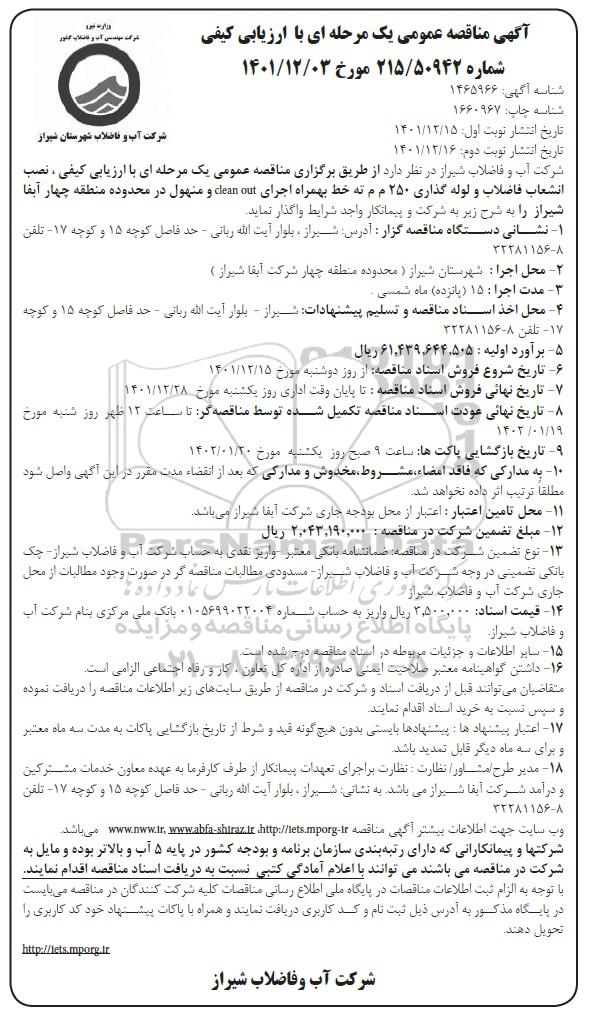 وزارت نیرو
شرکت مهندسی آب و فاضلاب کشور
شرکت آب و فاضلاب شهرستان شیراز
آگهی مناقصه عمومی یک مرحله ای با ارزیابی کیفی
شماره ۲۱۵/۵۰۹۴۲ مورخ ۱۴۰۱/۱۲/۰۳
شناسه آگهی: ۱۴۶۵۹۶۶
شناسه چاپ: ۱۶۶۰۹۶۷
تاریخ انتشار نوبت اول: ۱۴۰۱/۱۲/۱۵
تاریخ انتشار نوبت دوم: ۱۴۰۱/۱۲/۱۶
شرکت آب و فاضلاب شیراز در نظر دارد از طریق برگزاری مناقصه عمومی یک مرحله ای با ارزیابی کیفی ، نصب
انشعاب فاضلاب و لوله گذاری ۲۵۰ م م ته خط بهمراه اجرای clean out و منهول در محدوده منطقه چهار آبفا
شیراز را به شرح زیر به شرکت و پیمانکار واجد شرایط واگذار نماید.
۱- نشانی دستگاه مناقصه گزار : آدرس: شیراز ، بلوار آیت الله ربانی - حد فاصل کوچه ۱۵ و کوچه ۱۷- تلفن
۳۲۲۸۱۱۵۶-۸
۲- محل اجرا : شهرستان شیراز ( محدوده منطقه چهار شرکت آبفا شیراز )
۳- مدت اجرا : ۱۵ (پانزده) ماه شمسی .
۴- محل اخذ اسناد مناقصه و تسلیم پیشنهادات: شیراز - بلوار آیت الله ربانی - حد فاصل کوچه ۱۵ و کوچه
۱۷- تلفن ۸-۳۲۲۸۱۱۵۶
۵- برآورد اولیه : ۶۱,۴۳۹,۶۴۴,۵۰۵ ریال
۶- تاریخ شروع فروش اسناد مناقصه: از روز دوشنبه مورخ ۱۴۰۱/۱۲/۱۵
۷- تاریخ نهائی فروش اسناد مناقصه : تا پایان وقت اداری روز یکشنبه مورخ ۱۴۰۱/۱۲/۲۸
۸- تاریخ نهائی عودت اسناد مناقصه تکمیل شده توسط مناقصه‌گر: تا ساعت ۱۲ ظهر روز شنبه مورخ
۱۴۰۲/۰۱/۱۹
۹- تاریخ بازگشایی پاکت ها: ساعت ۹ صبح روز یکشنبه مورخ ۱۴۰۲/۰۱/۲۰
۱۰- به مدارکی که فاقد امضاء،مشروط،مخدوش و مدارکی که بعد از انقضاء مدت مقرر در این آگهی واصل شود
مطلقاً ترتیب اثر داده نخواهد شد.
۱۱- محل تامین اعتبار : اعتبار از محل بودجه جاری شرکت آبفا شیراز می‌باشد.
۱۲- مبلغ تضمین شرکت در مناقصه : ۲,۰۴۳,۱۹۰,۰۰۰ ریال
۱۳- نوع تضمین شرکت در مناقصه: ضمانتنامه بانکی معتبر -واریز نقدی به حساب شرکت آب و فاضلاب شیراز- چک
بانکی تضمینی در وجه شرکت آب و فاضلاب شیراز- مسدودی مطالبات مناقصه گر در صورت وجود مطالبات از محل
جاری شرکت آب و فاضلاب شیراز
۱۴- قیمت اسناد: ۳,۵۰۰,۰۰۰ ریال واریز به حساب شماره ۰۱۰۵۶۹۹۰۲۲۰۰۴ بانک ملی مرکزی بنام شرکت آب
و فاضلاب شیراز.
۱۵- سایر اطلاعات و جزئیات مربوطه در اسناد مناقصه درج شده است.
۱۶- داشتن گواهینامه معتبر صلاحیت ایمنی صادره از اداره کل تعاون ، کار و رفاه اجتماعی الزامی است.
متقاضیان می‌توانند قبل از دریافت اسناد و شرکت در مناقصه از طریق سایت‌های زیر اطلاعات مناقصه را دریافت نموده
و سپس نسبت به خرید اسناد اقدام نمایند.
۱۷- اعتبار پیشنهاد ها : پیشنهادها بایستی بدون هیچ‌گونه قید و شرط از تاریخ بازگشایی پاکات به مدت سه ماه معتبر
و برای سه ماه دیگر قابل تمدید باشد.
۱۸- مدیر طرح/مشاور/ نظارت : نظارت براجرای تعهدات پیمانکار از طرف کارفرما به عهده معاون خدمات مشترکین
و درآمد شرکت آبفا شیراز می باشد. به نشانی: شیراز ، بلوار آیت الله ربانی - حد فاصل کوچه ۱۵ و کوچه ۱۷- تلفن
۳۲۲۸۱۱۵۶-۸
وب سایت جهت اطلاعات بیشتر آگهی مناقصه www.nww.ir, www.abfa-shiraz.ir ،http://iets.mporg-ir می‌باشد.
شرکتها و پیمانکارانی که دارای رتبه‌بندی سازمان برنامه و بودجه کشور در پایه ۵ آب و بالاتر بوده و مایل به
شرکت در مناقصه می باشند می توانند با اعلام آمادگی کتبی نسبت به دریافت اسناد مناقصه اقدام نمایند.
با توجه به الزام ثبت اطلاعات مناقصات در پایگاه ملی اطلاع رسانی مناقصات کلیه شرکت کنندگان در مناقصه می‌بایست
در پایگاه مذکور به آدرس ذیل ثبت نام و کد کاربری دریافت نمایند و همراه با پاکات پیشنهاد خود کد کاربری را
تحویل دهند.
http://iets.mporg.ir
شرکت آب وفاضلاب شیراز
ParsNamadData
پایگاه اطلاع رسانی مناقصه و مزایده